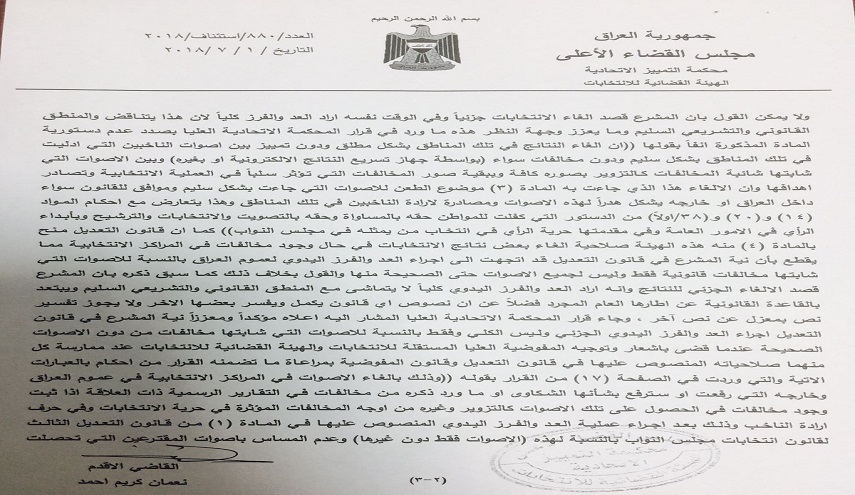 بسم الله الرحمن الرحيم
جمهورية العراق
مجلس القضاء الأعلى
محكمة التمييز الاتحادية
الهيئة القضائية للانتخابات
العدد/٨٨٠/استئناف/٢٠١٨
التاريخ / ١ / ٧ / ٢٠١٨
ولا يمكن القول بان المشرع قصد الغاء الانتخابات جزئياً وفي الوقت نفسه اراد العد والفرز كلياً لان هذا يتناقض والمنطق
القانوني والتشريعي السليم ومما يعزز وجهة النظر هذه ما ورد في قرار المحكمة الاتحادية العليا بصدد عدم دستورية
المادة المذكورة آنفاً بقولها ((ان الغاء النتائج في تلك المناطق بشكل مطلق ودون تمييز بين اصوات الناخبين التي ادليت
في تلك المناطق بشكل سليم ودون مخالفات سواء (بواسطة جهاز تسريع النتائج الالكترونية او بغيره) وبين الاصوات التي
شابتها شائبة المخالفات كالتزوير بصوره كافة وببقية صور المخالفات التي تؤثر سلباً في العملية الانتخابية وتصادر
اهدافها وان الالغاء هذا الذي جاءت به المادة (٣) موضوع الطعن للاصوات التي جاءت بشكل سليم وموافق للقانون سواء
داخل العراق او خارجه يشكل هدراً لهذه الاصوات ومصادرة لارادة الناخبين في تلك المناطق وهذا يتعارض مع احكام المواد
(١٤) و(٢٠) و(٣٨/اولاً) من الدستور التي كفلت للمواطن حقه بالمساواة وحقه بالتصويت والانتخابات والترشيح وبابداء
الرأي في الامور العامة وفي مقدمتها حرية الرأي في انتخاب من يمثله في مجلس النواب)) كما ان قانون التعديل منح
بالمادة (٤) منه هذه الهيئة صلاحية الغاء بعض نتائج الانتخابات في حال وجود مخالفات في المراكز الانتخابية مما
يقطع بأن نية المشرع في قانون التعديل قد اتجهت الى اجراء العد والفرز اليدوي لعموم العراق بالنسبة للاصوات التي
شابتها مخالفات قانونية فقط وليس لجميع الاصوات حتى الصحيحة منها والقول بخلاف ذلك كما سبق ذكره بان المشرع
قصد الالغاء الجزئي للنتائج وانه اراد العد والفرز اليدوي كلياً لا يتماشى مع المنطق القانوني والتشريعي السليم ويبتعد
بالقاعدة القانونية عن اطارها العام المجرد فضلاً عن ان نصوص اي قانون يكمل ويفسر بعضها الاخر ولا يجوز تفسير
نص بمعزل عن نص آخر ، وجاء قرار المحكمة الاتحادية العليا المشار اليه اعلاه مؤكداً ومعززاً نية المشرع في قانون
التعديل اجراء العد والفرز اليدوي الجزئي وليس الكلي وفقط بالنسبة للاصوات التي شابتها مخالفات من دون الاصوات
الصحيحة عندما قضى باشعار وتوجيه المفوضية العليا المستقلة للانتخابات والهيئة القضائية للانتخابات عند ممارسة كل
منهما صلاحياته المنصوص عليها في قانون التعديل وقانون المفوضية بمراعاة ما تضمنه القرار من احكام بالعبارات
الاتية والتي وردت في الصفحة (١٧) من القرار بقوله ((وذلك بالغاء الاصوات في المراكز الانتخابية في عموم العراق
وخارجه التي رفعت او سترفع بشأنها الشكاوى او ما ورد ذكره من مخالفات في التقارير الرسمية ذات العلاقة اذا ثبت
وجود مخالفات في الحصول على تلك الاصوات كالتزوير وغيره من اوجه المخالفات المؤثرة في حرية الانتخابات وفي حرف
ارادة الناخب وذلك بعد اجراء عملية العد والفرز اليدوي المنصوص عليها في المادة (١) من قانون التعديل الثالث
لقانون انتخابات مجلس النواب بالنسبة لهذه (الاصوات فقط دون غيرها) وعدم المساس باصوات المقترعين التي تحصلت
القاضي الاقدم
نعمان كريم احمد
(٢-٣)
محكمة التمييز
الاتحادية
الهيئة القضائية للانتخابات